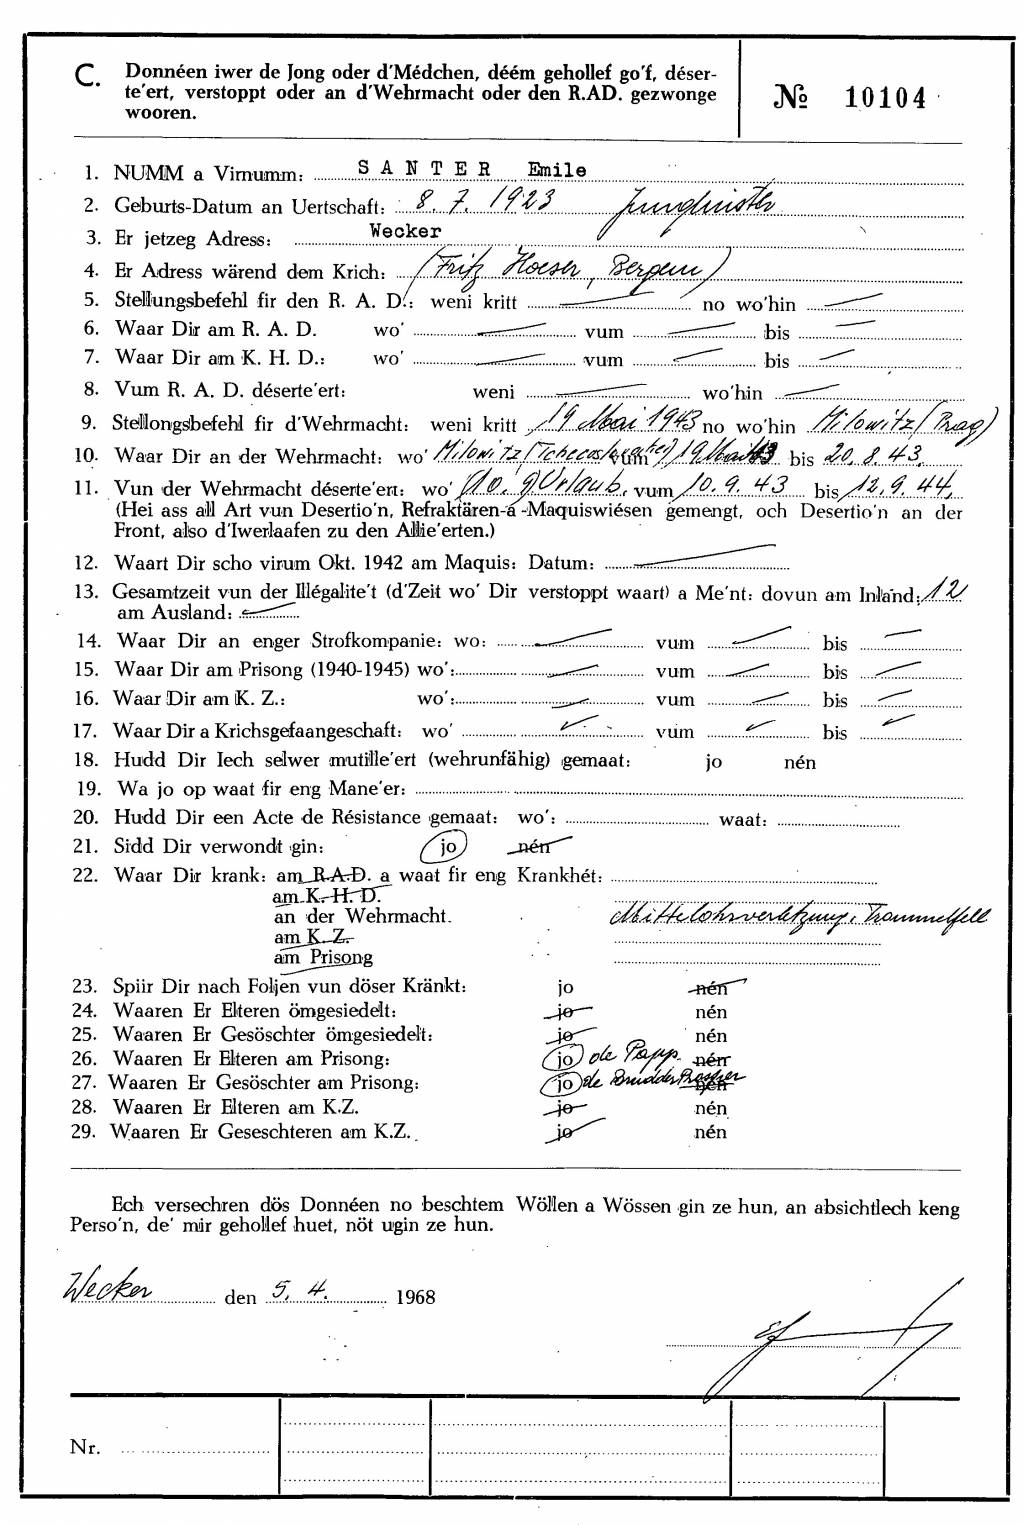 C. Donnéen iwer de Jong oder d'Médchen, déém gehollef go'f, déser-
te'ert, verstoppt oder an d'Wehrmacht oder den R.AD. gezwonge
wooren.
№ 10104
1. NUMM a Virnumm: SANTER Emile
2. Geburts-Datum an Uertschaft: 8. 7. 1923 Junglinster
3. Er jetzeg Adress: Wecker
4. Er Adress wärend dem Krich: (Fritz Hoeser, Bergem)
5. Stellungsbefehl fir den R. A. D.: weni kritt — no wo'hin —
6. Waar Dir am R. A. D. wo' — vum — bis —
7. Waar Dir am K. H. D.: wo' — vum — bis —
8. Vum R. A. D. déserte'ert: weni — wo'hin —
9. Stellongsbefehl fir d'Wehrmacht: weni kritt 19 Mai 1943 no wo'hin Milowitz (Prag)
10. Waar Dir an der Wehrmacht: wo' Milowitz vum 19 Mai 43 bis 20. 8. 43.
11. Vun der Wehrmacht déserte'ert: wo' Urlaub, vum 10. 9. 43 bis 12. 9. 44.
(Hei ass all Art vun Desertio'n, Refraktären-a -Maquiswiésen gemengt, och Desertio'n an der
Front, also d'Iwerlaafen zu den Allie'erten.)
12. Waart Dir scho virum Okt. 1942 am Maquis: Datum: —
13. Gesamtzeit vun der Illégalite't (d'Zeit wo' Dir verstoppt waart) a Me'nt: dovun am Inland: 12
am Ausland: —
14. Waar Dir an enger Strofkompanie: wo: — vum — bis —
15. Waar Dir am Prisong (1940-1945) wo': — vum — bis —
16. Waar Dir am K. Z.: wo': — vum — bis —
17. Waar Dir a Krichsgefaangeschaft: wo' — vum — bis —
18. Hudd Dir Iech selwer mutille'ert (wehrunfähig) gemaat: jo nén
19. Wa jo op waat fir eng Mane'er:
20. Hudd Dir een Acte de Résistance gemaat: wo': waat:
21. Sidd Dir verwondt gin: jo nén
22. Waar Dir krank: am R.A.D. a waat fir eng Krankhét:
am K. H. D.
an der Wehrmacht. Mittelohrverletzung, Trommelfell
am K. Z.
am Prisong
23. Spiir Dir nach Foljen vun döser Kränkt: jo nén
24. Waaren Er Elteren ömgesiedelt: jo nén
25. Waaren Er Gesöschter ömgesiedelt: jo nén
26. Waaren Er Elteren am Prisong: jo de Papp. nén
27. Waaren Er Gesöschter am Prisong: jo de Brudder nén
28. Waaren Er Elteren am K.Z. jo nén
29. Waaren Er Geseschteren am K.Z. jo nén
Ech versechren dös Donnéen no beschtem Wöllen a Wössen gin ze hun, an absichtlech keng
Perso'n, de' mir gehollef huet, nöt ugin ze hun.
Wecker den 5. 4. 1968
Nr.